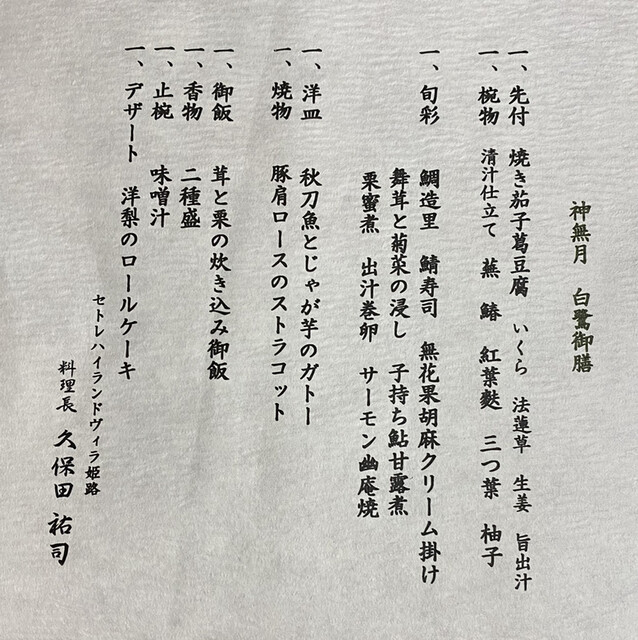 神無月 白鷺御膳
一、先付 焼き茄子葛豆腐 いくら 法蓮草 生姜 旨出汁
一、椀物 清汁仕立て 蕪 鰆 紅葉麩 三つ葉 柚子
一、旬彩 鯛造里 鯖寿司 無花果胡麻クリーム掛け
舞茸と菊菜の浸し 子持ち鮎甘露煮
栗蜜煮 出汁巻卵 サーモン幽庵焼
一、洋皿 秋刀魚とじゃが芋のガトー
一、焼物 豚肩ロースのストラコット
一、御飯 茸と栗の炊き込み御飯
一、香物 二種盛
一、止椀 味噌汁
一、デザート 洋梨のロールケーキ
セトレハイランドヴィラ姫路
料理長 久保田 祐司